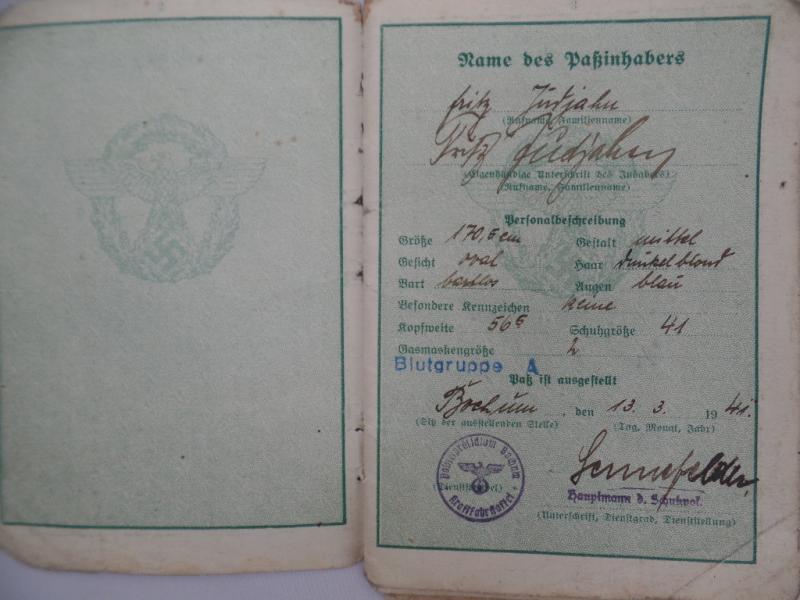 Name des Paßinhabers
Fritz Judjahn
(Rufname, Familienname)
Fritz Judjahn
(Eigenhändige Unterschrift des Inhabers)
(Rufname, Familienname)
Personalbeschreibung
Größe 170,5 cm Gestalt mittel
Gesicht oval Haar dunkelblond
Bart bartlos Augen blau
Besondere Kennzeichen keine
Kopfweite 56⁵ Schuhgröße 41
Gasmaskengröße 2
Blutgruppe A
Paß ist ausgestellt
Bochum, den 13. 3. 1941.
(Sitz der ausstellenden Stelle) (Tag, Monat, Jahr)
Polizeipräsidium Bochum
Kraftfahrstaffel
(Dienststempel)
Hauptmann d. Schutzpol.
(Unterschrift, Dienstgrad, Dienststellung)